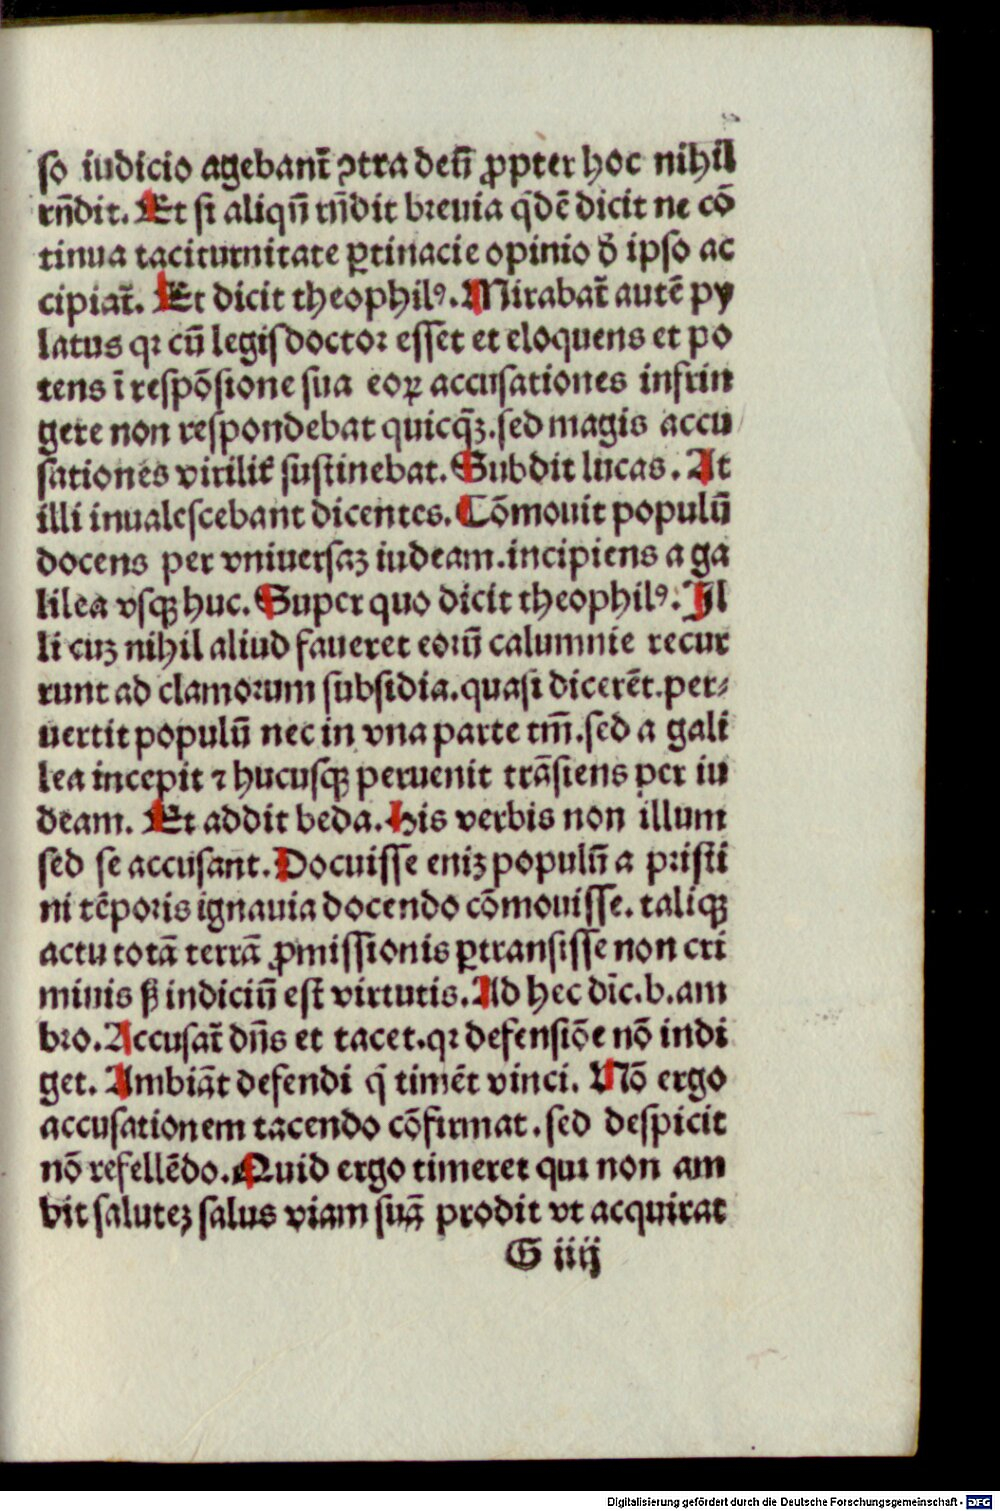 so iudicio agebant̄ ꝯtra deū ꝓpter hoc nihil
rn̄dit. Et si aliqn̄ rn̄dit breuia qͥdē dicit ne cō
tinua taciturnitate ꝑtinacie opinio ꝺ̄ ipso ac
cipiat̄. Et dicit theophilꝰ. Mirabat̄ autē py
latus qꝛ cū legisdoctor esset et eloquens et po
tens ī respōsione sua eoꝝ accusationes infrin
gere non respondebat quicq̄ꝫ. sed magis accu
sationes virilit̄ sustinebat. Subdit lucas. At
illi inualescebant dicentes. Cōmouit populū
docens per vniuersaꝫ iudeam. incipiens a ga
lilea vsqꝫ huc. Super quo dicit theophilꝰ. Il
li cuꝫ nihil aliud faueret eorū calumnie recur
runt ad clamorum subsidia. quasi dicerēt. per⸗
uertit populū nec in vna parte tm̄. sed a gali
lea incepit ⁊ hucusqꝫ peruenit trāsiens per iu
deam. Et addit beda. His verbis non illum
sed se accusant. Docuisse eniꝫ populū a pristi
ni tēporis ignauia docendo cōmouisse. taliqꝫ
actu totā terrā ꝓmissionis ꝑtransisse non cri
minis sꝫ indiciū est virtutis. Ad hec dīc. b. am
bro. Accusat̄ dn̄s et tacet. qꝛ defensiōe nō indi
get. Ambiāt defendi q̄ timēt vinci. Nō ergo
accusationem tacendo cōfirmat. sed despicit
nō refellēdo. Quid ergo timeret qui non am
bit saluteꝫ salus viam suā prodit vt acquirat
G iiij
Digitalisierung gefördert durch die Deutsche Forschungsgemeinschaft - DFG